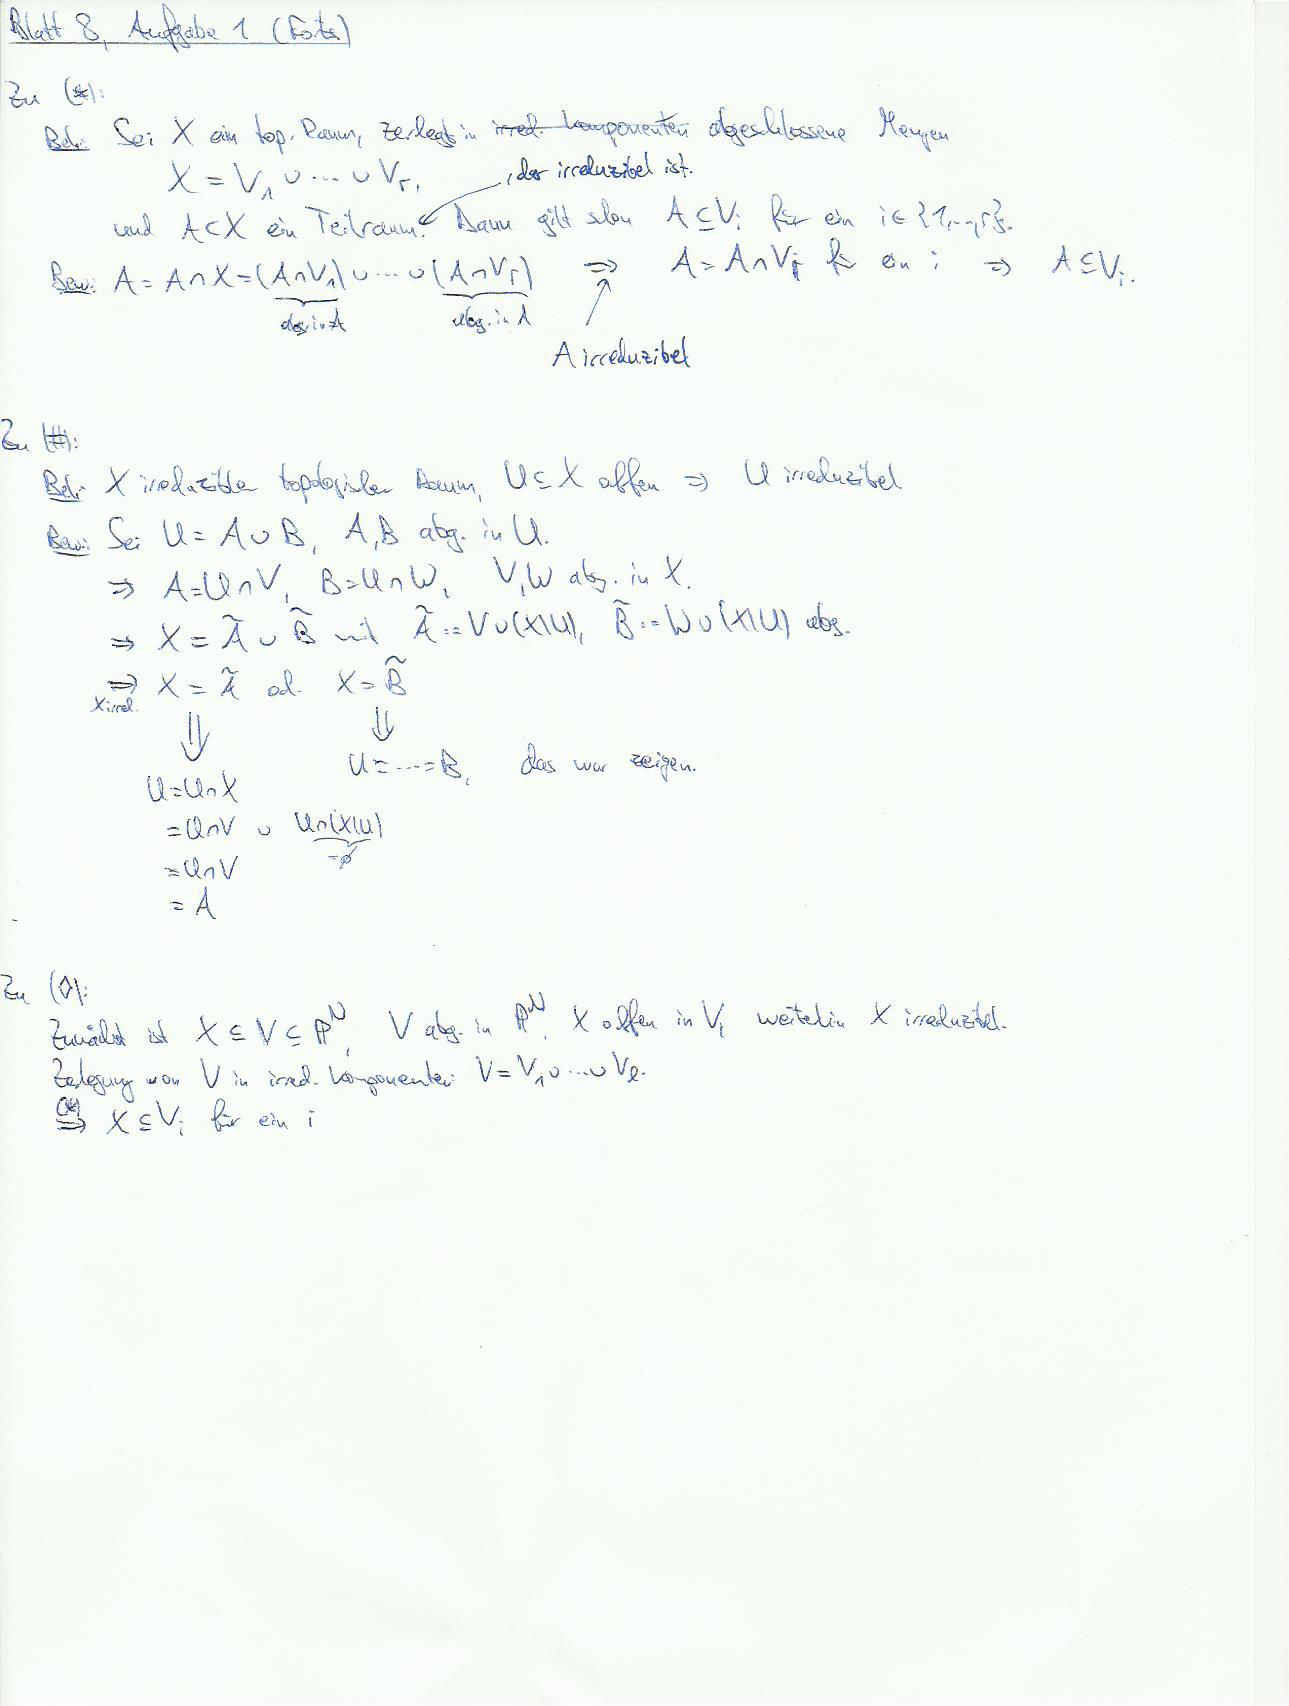 Blatt 8, Aufgabe 1 (Forts)
Zu (*):
Beh: Sei X ein top. Raum, zerlegt in irred. Komponenten abgeschlossene Mengen
X = V₁ ∪ ⋯ ∪ Vᵣ,
, der irreduzibel ist.
und A ⊂ X ein Teilraum. Dann gilt schon A ⊆ Vᵢ für ein i ∈ {1,...,r}.
Bew: A = A ∩ X = (A ∩ V₁) ∪ ⋯ ∪ (A ∩ Vᵣ) ⇒ A = A ∩ Vᵢ für ein i ⇒ A ⊆ Vᵢ.
abg. in A abg. in A
A irreduzibel
Zu (#):
Beh: X irreduzibler topologischer Raum, U ⊆ X offen ⇒ U irreduzibel
Bew: Sei U = A ∪ B, A, B abg. in U.
⇒ A = U ∩ V, B = U ∩ W, V, W abg. in X.
⇒ X = Ã ∪ B̃ mit Ã := V ∪ (X\U), B̃ := W ∪ (X\U) abg.
⇒ X = Ã od. X = B̃
X irred.
⇓ ⇓
U = ⋯ = B, das war zeigen.
U = U ∩ X
= U ∩ V ∪ U ∩ (X\U)
= ∅
= U ∩ V
= A
Zu (◊):
Zunächst ist X ⊆ V ⊆ ℙᴺ, V abg. in ℙᴺ, X offen in V, weiterhin X irreduzibel.
Zerlegung von V in irred. Komponenten: V = V₁ ∪ ⋯ ∪ Vₗ.
(*)
⇒ X ⊆ Vᵢ für ein i